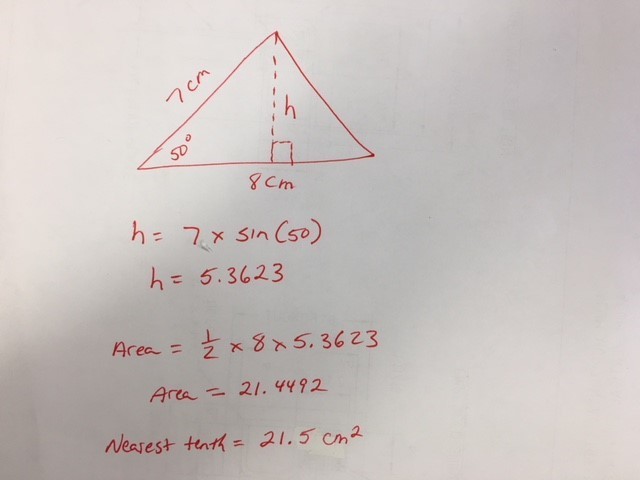 7 cm
h
50°
8 cm
h = 7 x sin(50)
h = 5.3623
Area = 1/2 x 8 x 5.3623
Area = 21.4492
Nearest tenth = 21.5 cm²